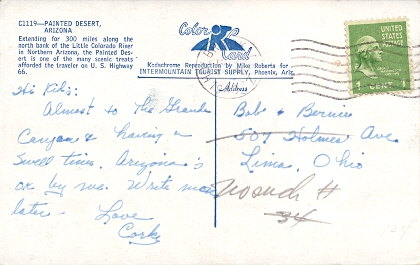 C1119—PAINTED DESERT,
ARIZONA
Extending for 300 miles along the
north bank of the Little Colorado River
in Northern Arizona, the Painted Des-
ert is one of the many scenic treats
afforded the traveler on U. S. Highway
66.
Color
Card
Kodachrome Reproduction by Mike Roberts for
INTERMOUNTAIN TOURIST SUPPLY, Phoenix, Ariz.
Address
UNITED STATES POSTAGE
1 CENT
Hi Kids:
Almost to the Grand
Canyon & having a
swell time. Arizona's
ok by me. Write more
later.
Love
Corky
Babe & Bernie
507 Holmes Ave
Lima, Ohio
No such #
34